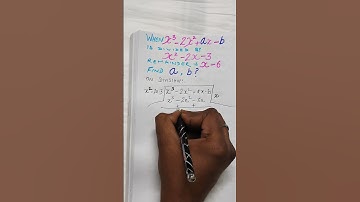 When x³-2x²+ax-b
is divided by
x²-2x-3
Remainder is x-6
Find a, b?
x²-2x-3 x³-2x²+ax-b x
x³-2x²-3x